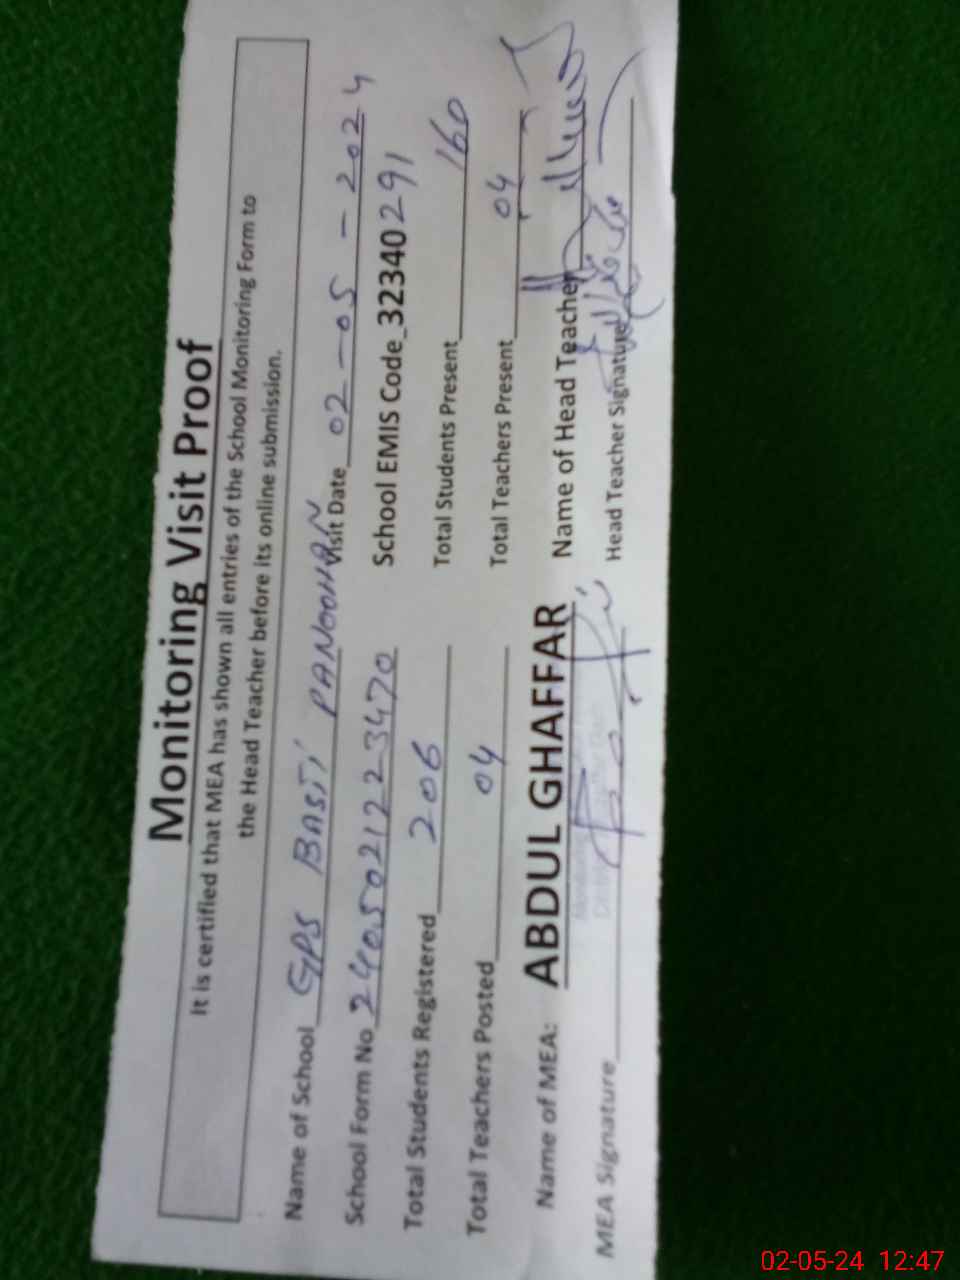 Monitoring Visit Proof
It is certified that MEA has shown all entries of the School Monitoring Form to
the Head Teacher before its online submission.
Name of School GPS BASTI PANOOHAN Visit Date 02-05-2024
School Form No 2405021223470 School EMIS Code_32340291
Total Students Registered 206 Total Students Present 160
Total Teachers Posted 04 Total Teachers Present 04
Name of MEA: ABDUL GHAFFAR Name of Head Teacher
MEA Signature Head Teacher Signature
02-05-24 12:47